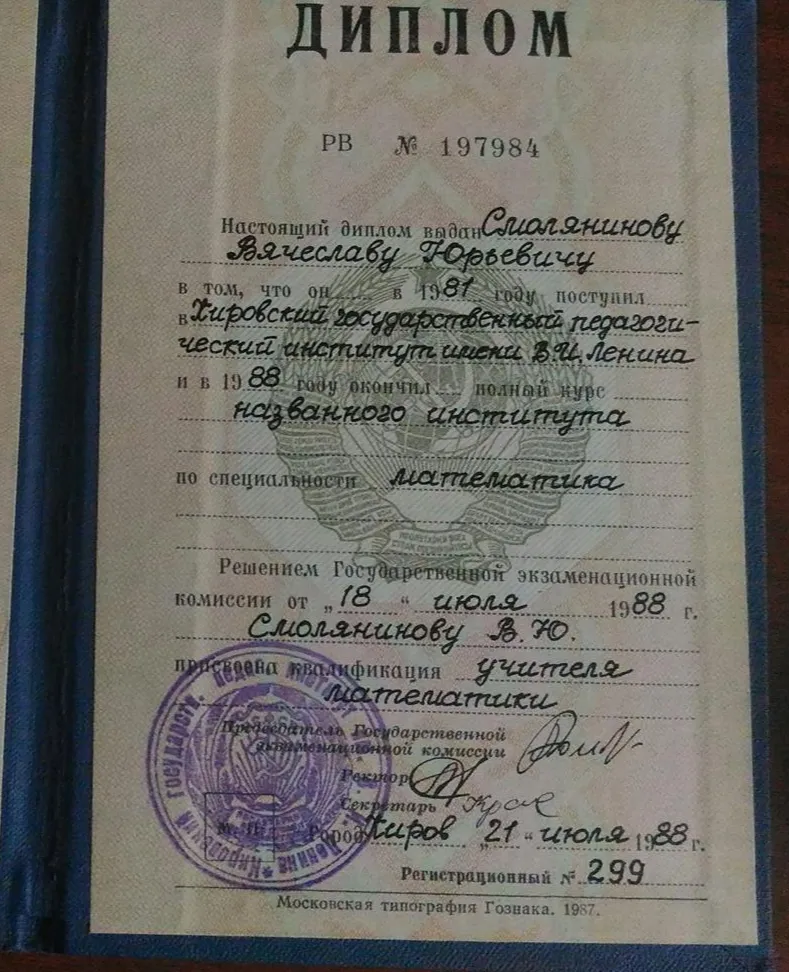 ДИПЛОМ
РВ № 197984
Настоящий диплом выдан Смолянинову
Вячеславу Юрьевичу
в том, что он в 1981 году поступил
в Кировский государственный педагоги-
ческий институт имени В.И. Ленина
и в 1988 году окончил полный курс
названного института
по специальности математика
Решением Государственной экзаменационной
комиссии от „18“ июля 1988 г.
Смолянинову В.Ю.
присвоена квалификация учителя
математики
Председатель Государственной
экзаменационной комиссии
Ректор
Секретарь
Город Киров „21“ июля 1988 г.
Регистрационный № 299
Московская типография Гознака. 1987.